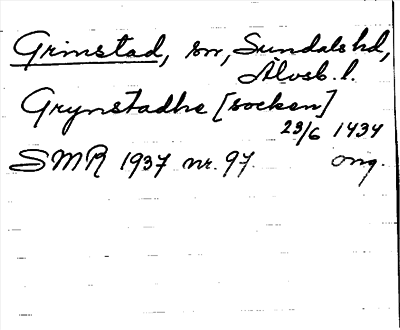 Grinstad, sn, Sundals hd,
Älvsb. l.
Grynstadhe [socken]
23/6 1434
SMR 1937 nr. 97. orig.